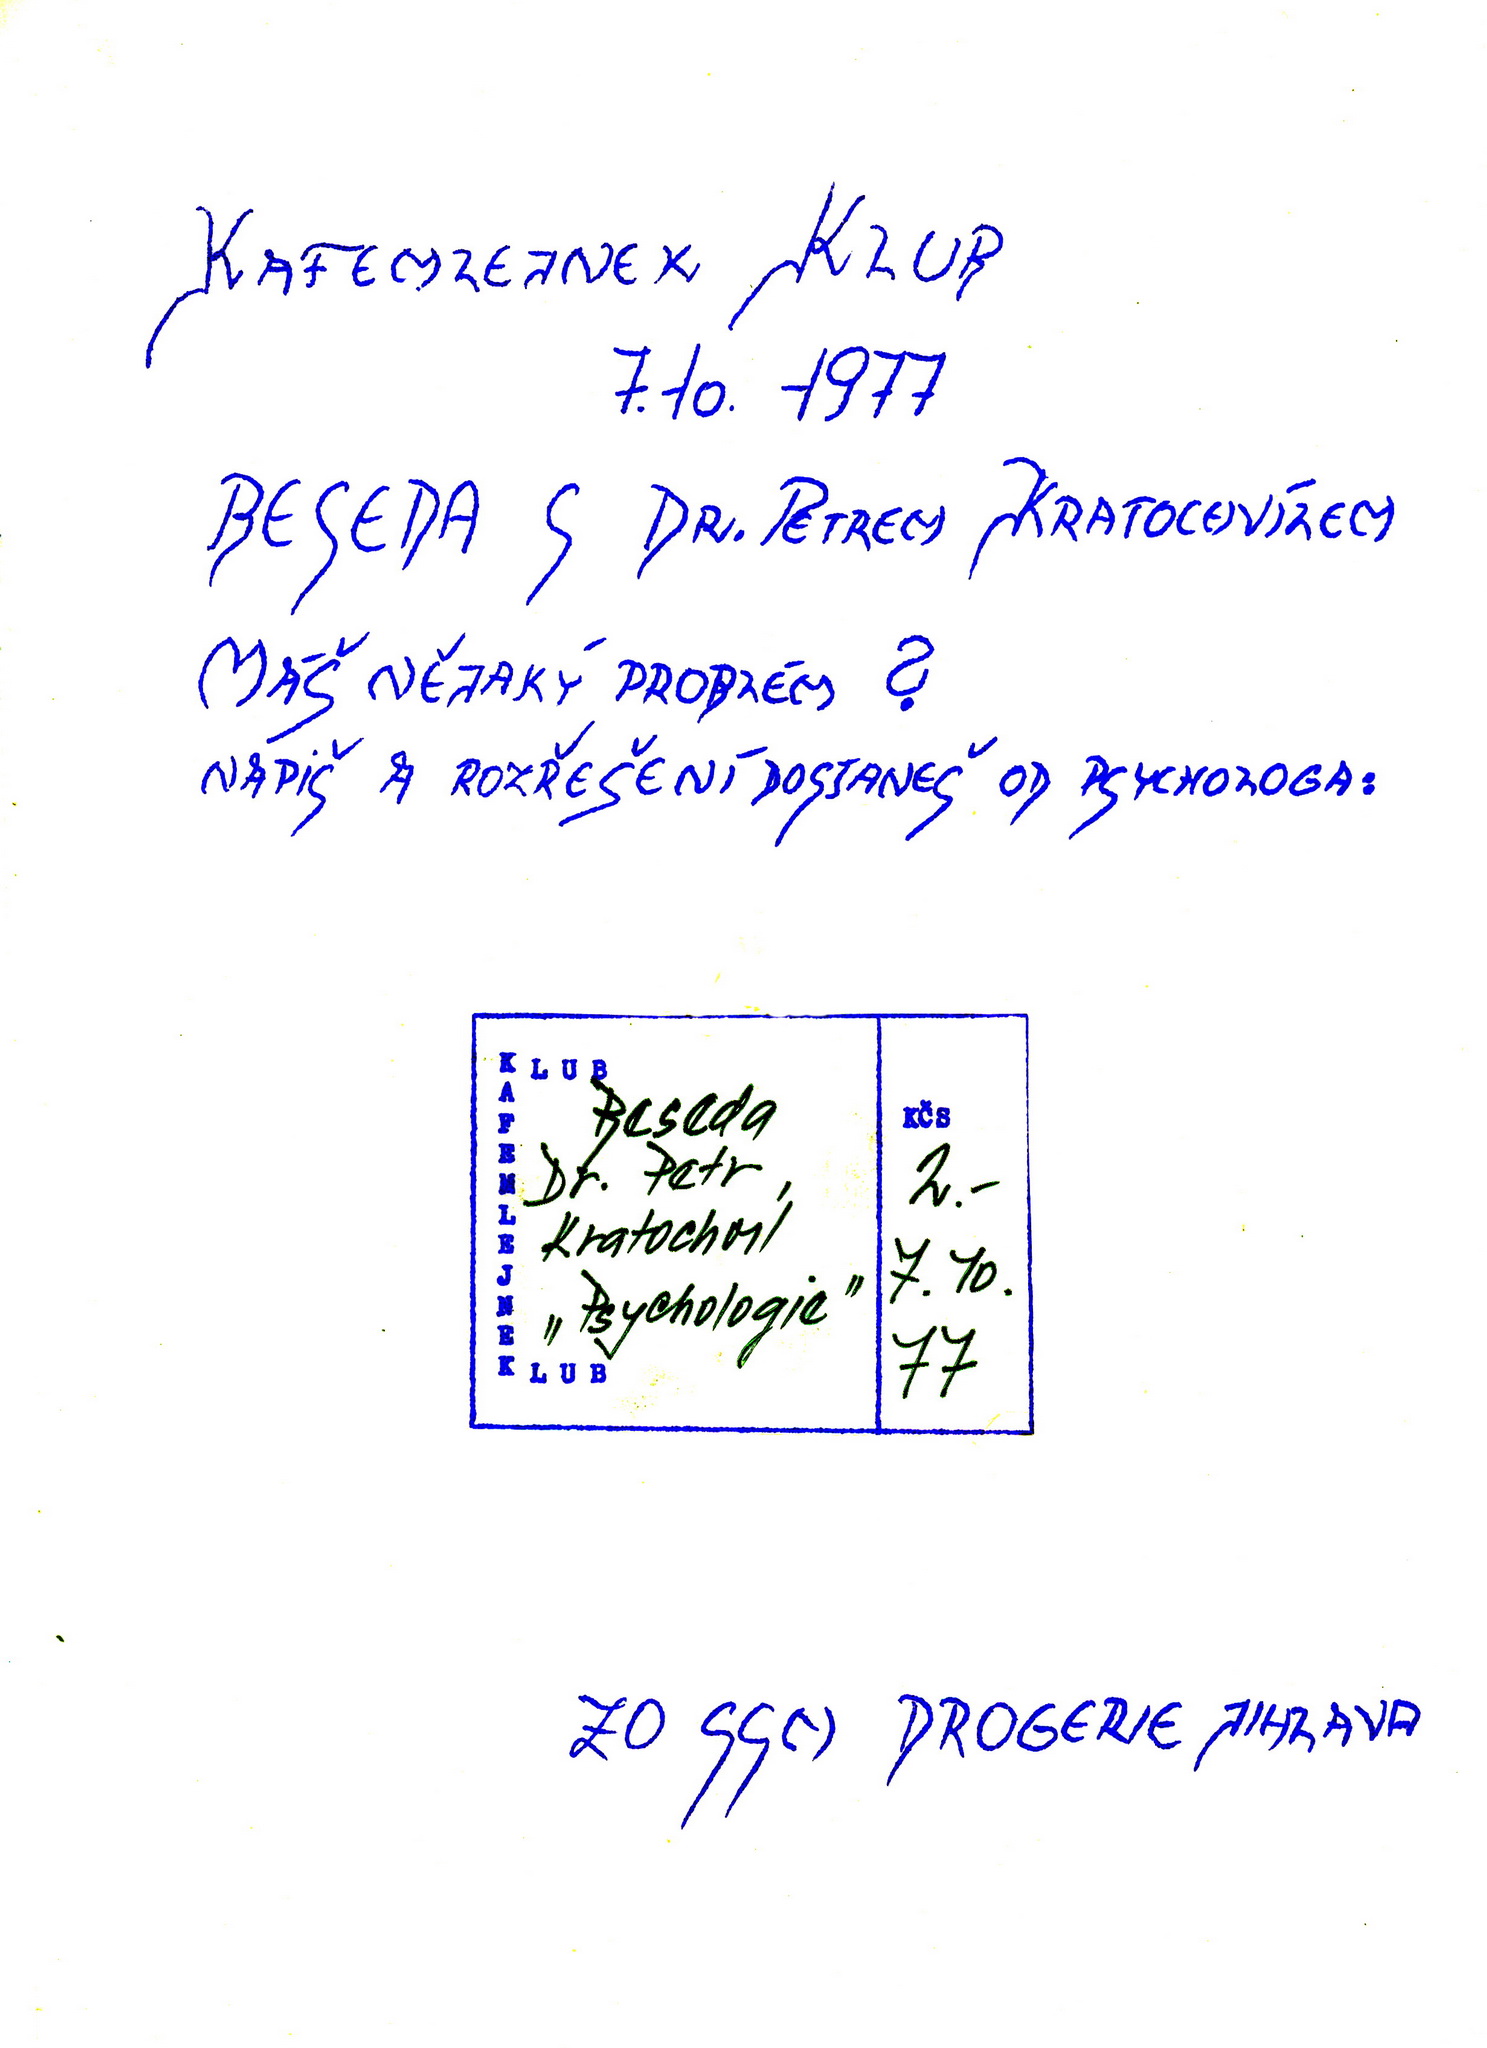 KAFEMLEJNEK KLUB
7.10. 1977
BESEDA S DR. PETREM KRATOCHVÍLEM
MÁŠ NĚJAKÝ PROBLÉM ?
NAPIŠ A ROZŘEŠENÍ DOSTANEŠ OD PSYCHOLOGA:
KLUB
KAFEMLEJNEK
Beseda
Dr. Petr
Kratochvíl
„Psychologie"
KLUB
KČS
2.-
7. 10.
77
ZO SSM DROGERIE JIHLAVA